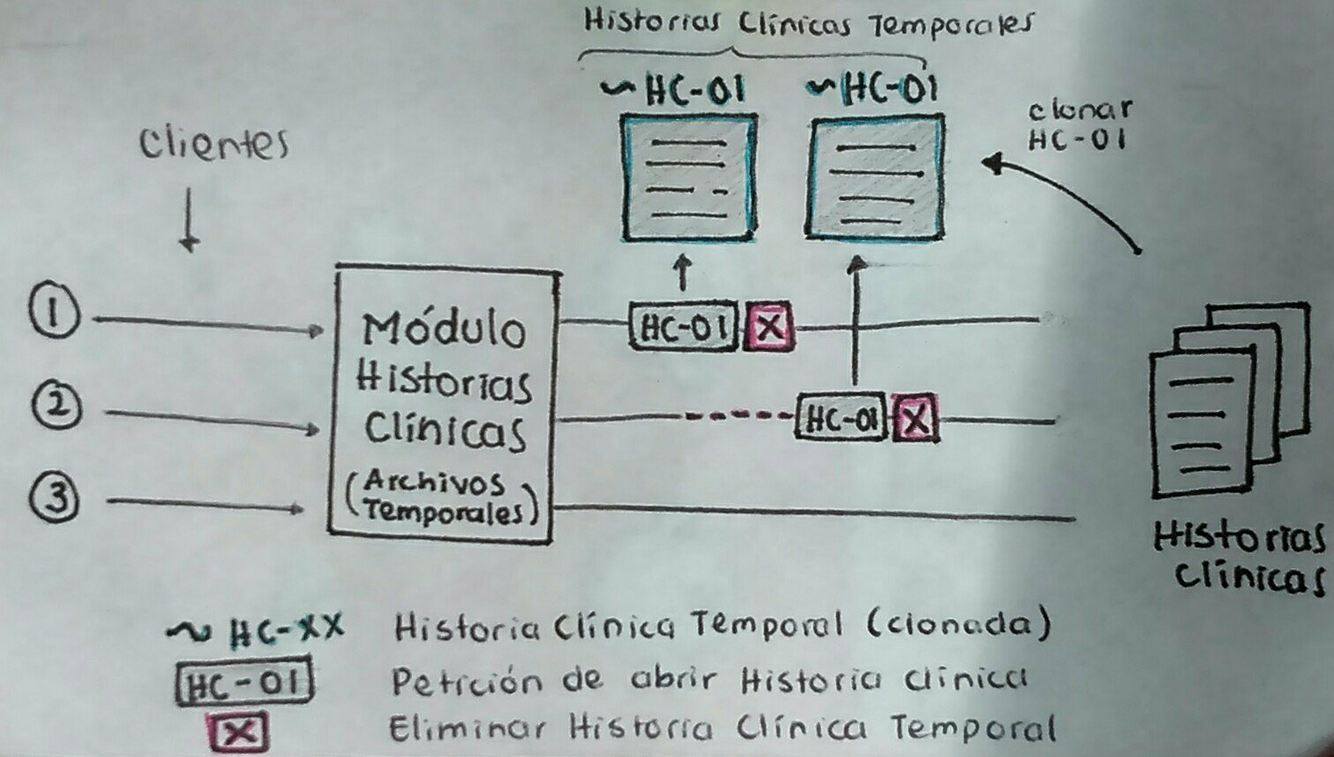 Historias Clínicas Temporales
~HC-01
~HC-01
clonar
HC-01
Clientes
1
2
3
Módulo
Historias
Clínicas
(Archivos
Temporales)
HC-01 X
HC-01 X
Historias
Clínicas
~ HC-XX Historia Clínica Temporal (clonada)
HC-01 Petición de abrir Historia clínica
X Eliminar Historia Clínica Temporal